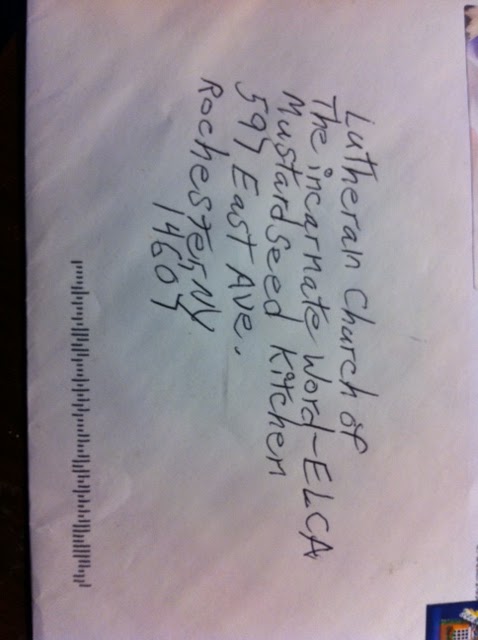 Lutheran Church of
The incarnate Word-ELCA
Mustard Seed Kitchen
597 East Ave.
Rochester, NY
14607